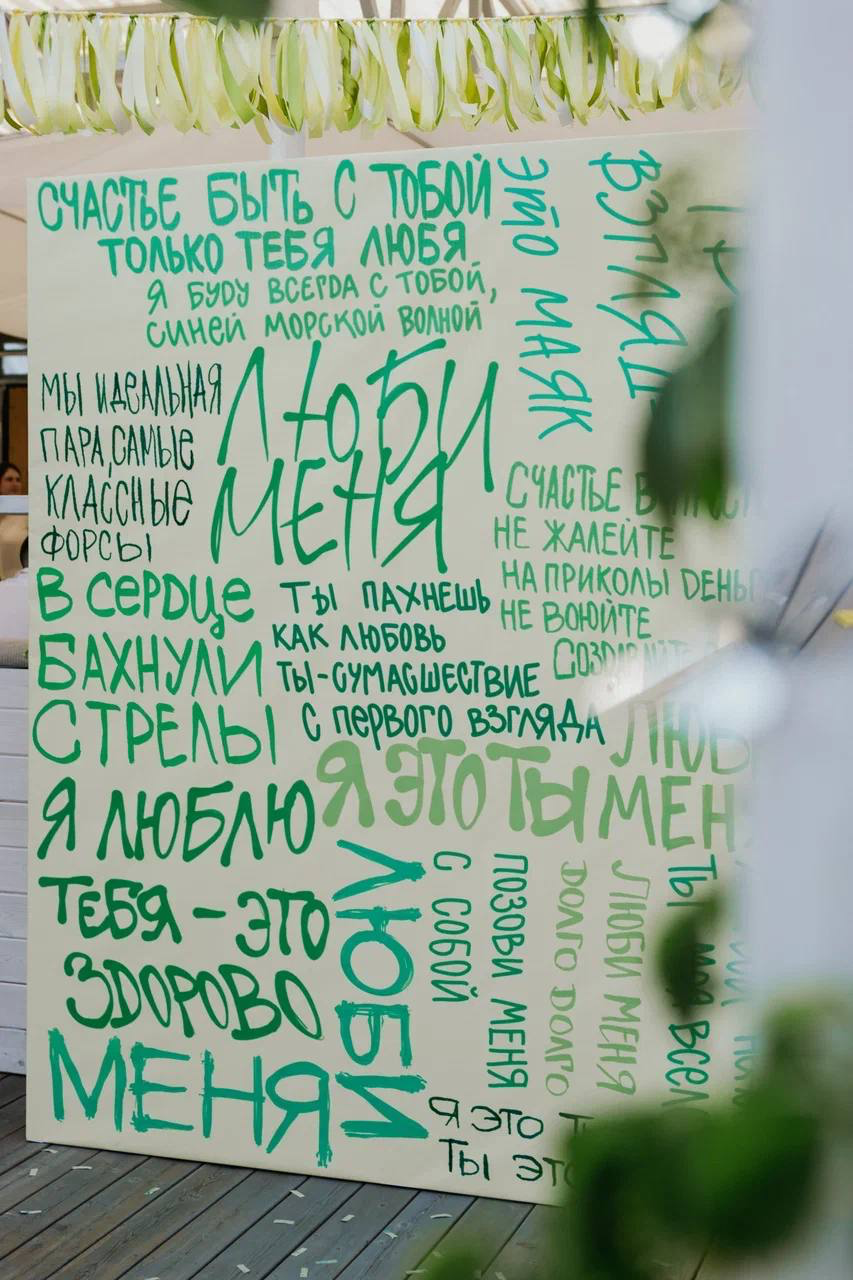 СЧАСТЬЕ БЫТЬ С ТОБОЙ
ТОЛЬКО ТЕБЯ ЛЮБЯ
Я БУДУ ВСЕГДА С ТОБОЙ,
СИНЕЙ МОРСКОЙ ВОЛНОЙ
ЭЙО МАЯК
МЫ ИДЕАЛЬНАЯ
ПАРА, САМЫЕ
КЛАССНЫЕ
ФОРСЫ
ЛЮБИ
МЕНЯ
СЧАСТЬЕ
НЕ ЖАЛЕЙТЕ
НА ПРИКОЛЫ
НЕ ВОЮЙТЕ
В СЕРДЦЕ
БАХНУЛИ
СТРЕЛЫ
ТЫ ПАХНЕШЬ
КАК ЛЮБОВЬ
ТЫ-СУМАСШЕСТВИЕ
С ПЕРВОГО ВЗГЛЯДА
Я ЭТО ТЫ
Я ЛЮБЛЮ
ТЕБЯ - ЭТО
ЗДОРОВО
ЛЮБИ
МЕНЯ
С СОБОЙ
ПОЗОВИ МЕНЯ
ДОЛГО ДОЛГО
ЛЮБИ МЕНЯ
ТЫ МОЯ
Я ЭТО
ТЫ ЭТО